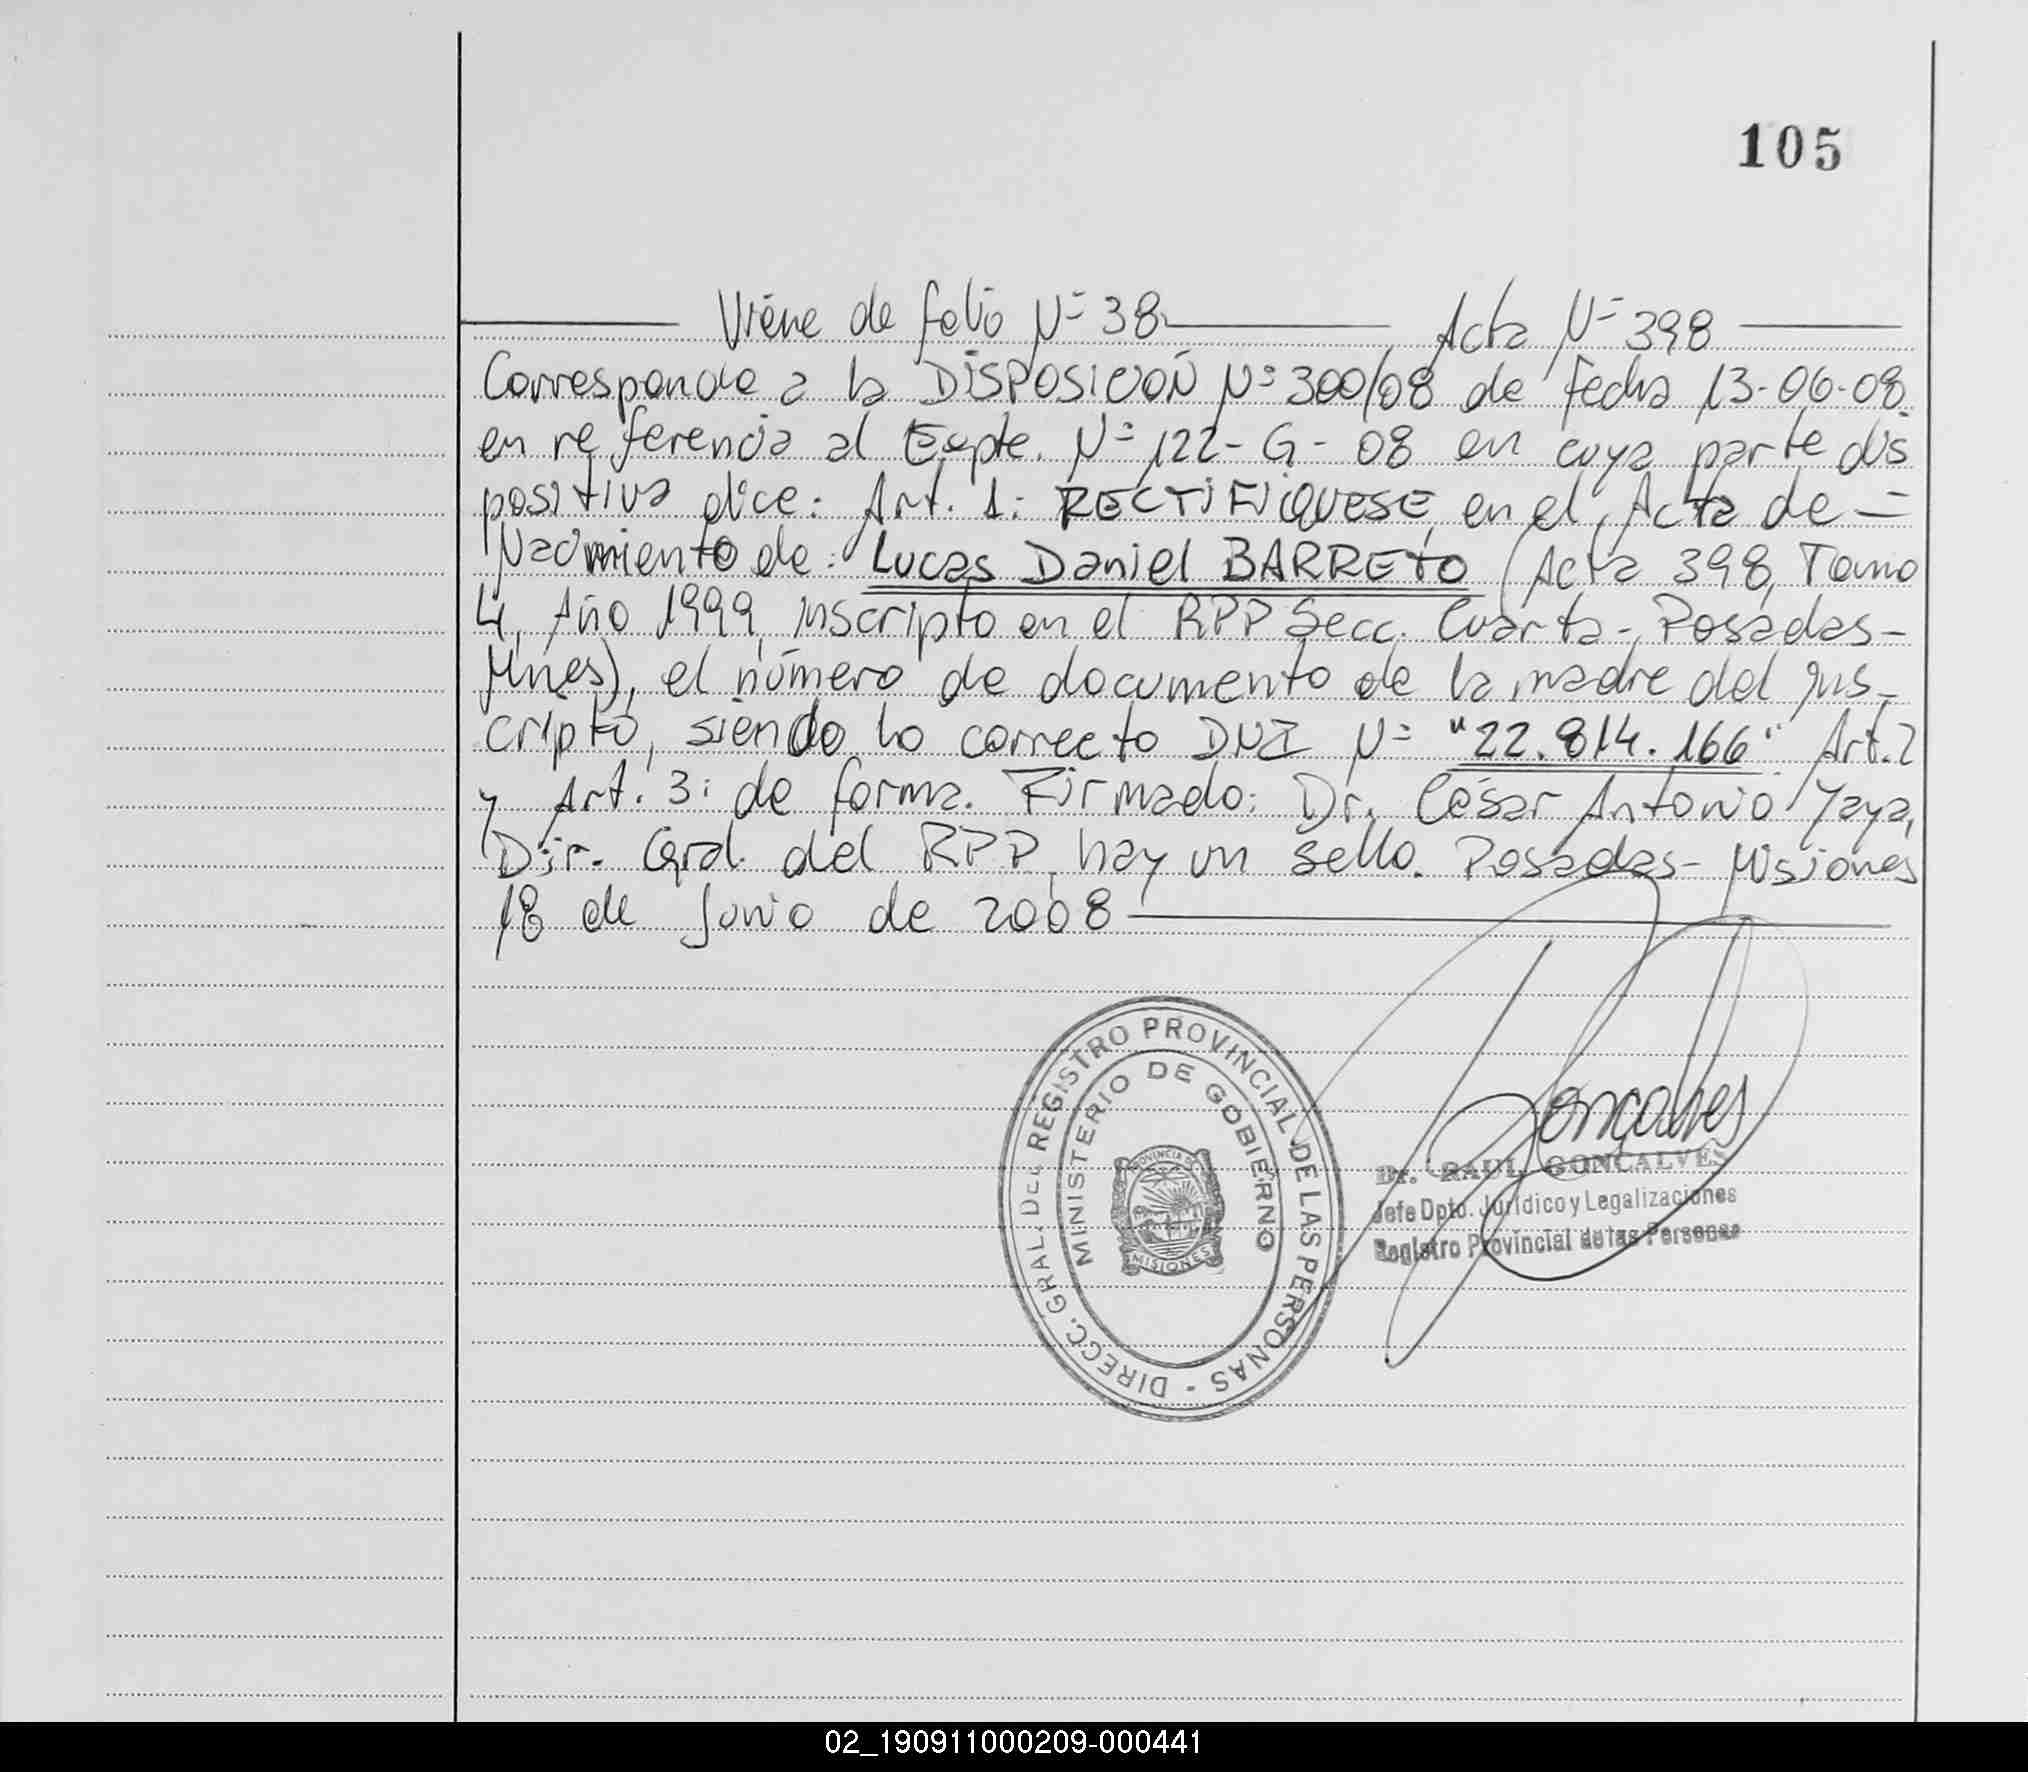 105
Viene de folio Nº 38 Acta Nº 398
Corresponde a la DISPOSICIÓN Nº 300/08 de fecha 13-06-08.
en referencia al Expte. Nº 122-G-08 en cuya parte dis
positiva dice: Art. 1: RECTIFIQUESE, en el Acta de -
Nacimiento de: Lucas Daniel BARRETO (Acta 398, Tomo
4, Año 1999, inscripto en el RPP Secc. Cuarta-, Posadas-
Mnes), el número de documento de la madre del ins-
cripto, siendo lo correcto DNI Nº "22.814.166" Art. 2
y Art. 3: de forma. Firmado: Dr. César Antonio Yaya,
Dir. Gral. del RPP, hay un sello. Posadas- Misiones
18 de Junio de 2008
DIRECC. GRAL. DEL REGISTRO PROVINCIAL DE LAS PERSONAS -
MINISTERIO DE GOBIERNO
PROVINCIA DE
MISIONES
Gonçalves
Dr. RAUL GONCALVES
Jefe Dpto. Jurídico y Legalizaciones
Registro Provincial de las Personas
02_190911000209-000441